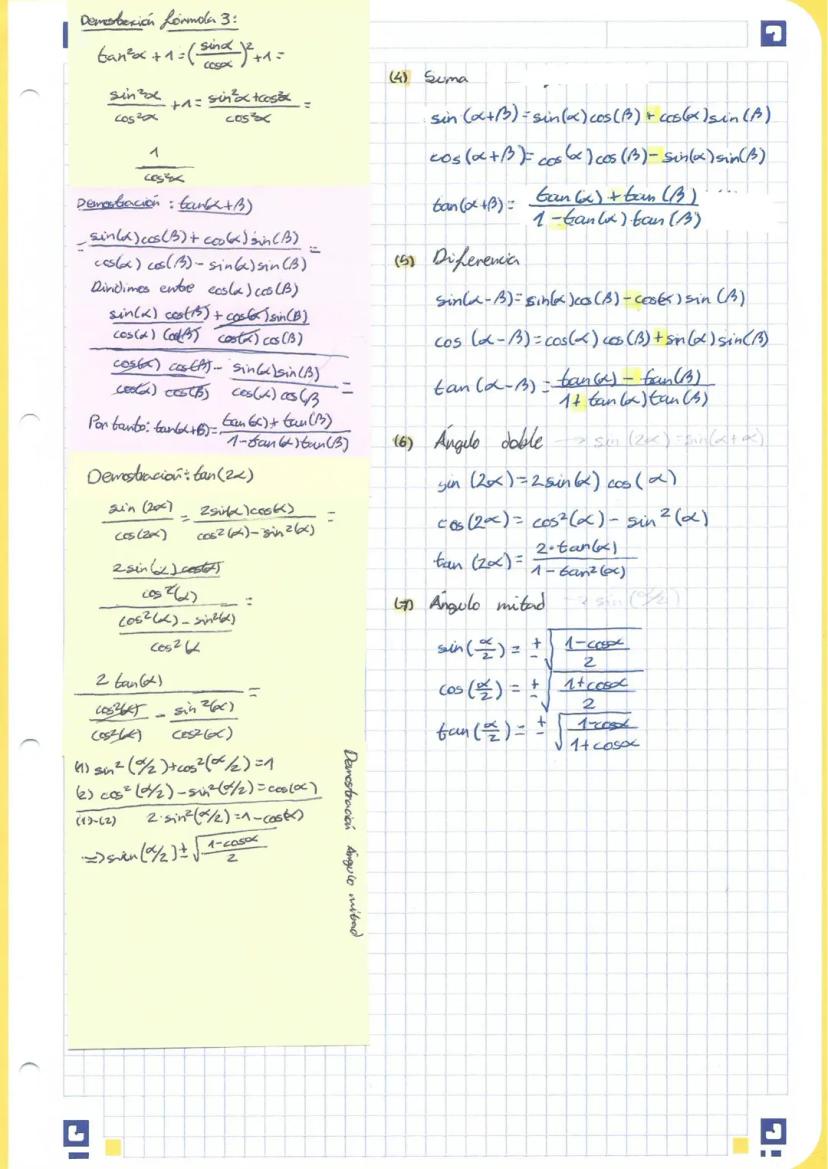 Demostración fórmula 3:
tan²α + 1 = (sinα/cosα)² + 1 =
sin²α/cos²α + 1 = (sin²α + cos²α)/cos²α =
1/cos²α
Demostración: tan(α+β)
= (sin(α)cos(β) + cos(α)sin(β))/(cos(α)cos(β) - sin(α)sin(β)) =
Dividimos entre cos(α)cos(β)
sin(α) cos(β)/cos(α) cos(β) + cos(α)sin(β)/cos(α) cos(β)
cos(α) cos(β)/cos(α) cos(β) - sin(α)sin(β)/cos(α) cos(β =
Por tanto: tan(α+β) = (tan(α) + tan(β))/(1 - tan(α)tan(β))
Demostración: tan(2α)
sin(2α)/cos(2α) = 2sin(α)cos(α)/(cos²(α) - sin²(α)) =
2 sin(α) cos(α)/cos²(α)
(cos²(α) - sin²(α))/cos²α =
2 tan(α)
cos²(α)/cos²(α) - sin²(α)/cos²(α) =
(1) sin²(α/2) + cos²(α/2) = 1
(2) cos²(α/2) - sin²(α/2) = cos(α)
(1)-(2) 2·sin²(α/2) = 1 - cos(α)
=> sin(α/2) ± √((1-cosα)/2)
Demostración Ángulo mitad
(4) Suma
sin(α+β) = sin(α)cos(β) + cos(α)sin(β)
cos(α+β) = cos(α)cos(β) - sin(α)sin(β)
tan(α+β) = (tan(α) + tan(β))/(1 - tan(α)·tan(β))
(5) Diferencia
sin(α-β) = sin(α)cos(β) - cos(α)sin(β)
cos(α-β) = cos(α)cos(β) + sin(α)sin(β)
tan(α-β) = (tan(α) - tan(β))/(1 + tan(α)tan(β))
(6) Ángulo doble → sin(2α) = sin(α+α)
sin(2α) = 2sin(α) cos(α)
cos(2α) = cos²(α) - sin²(α)
tan(2α) = 2·tan(α)/(1 - tan²(α))
(7) Ángulo mitad → sin(α/2)
sin(α/2) = ± √((1-cosα)/2)
cos(α/2) = ± √((1+cosα)/2)
tan(α/2) = ± √((1-cosα)/(1+cosα))